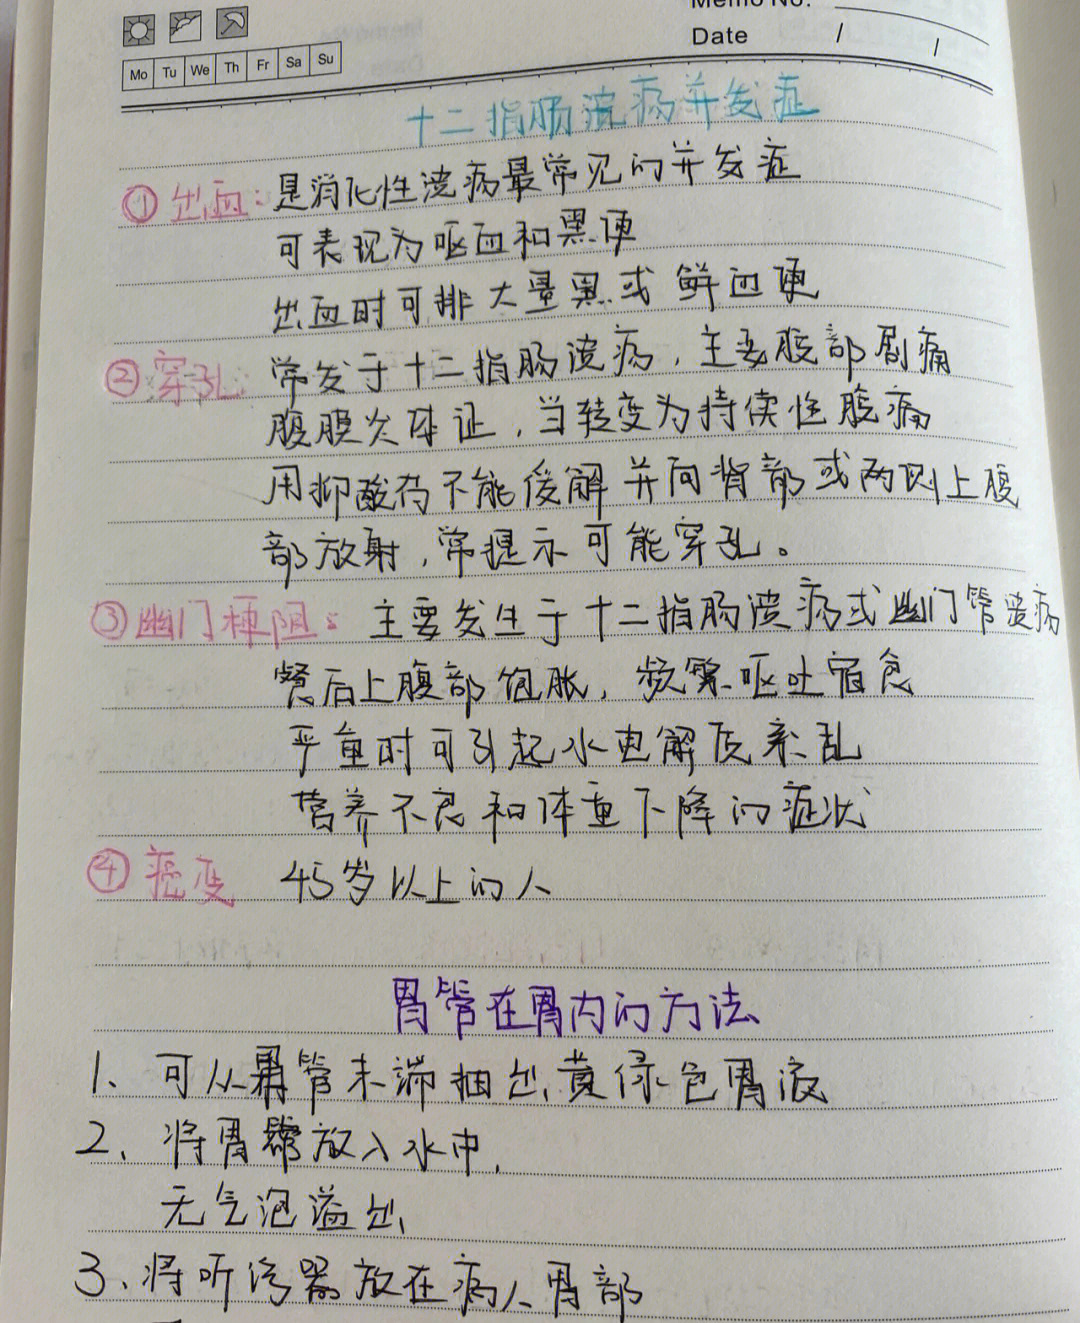 Memo No.
Mo Tu We Th Fr Sa Su
Date / /
十二指肠溃疡并发症
① 出血：是消化性溃疡最常见的并发症
可表现为呕血和黑便
出血时可排大量黑或鲜血便
② 穿孔 常发于十二指肠溃疡，主要腹部剧痛
腹膜炎体证，当转变为持续性腹痛
用抑酸药不能缓解并向背部或两侧上腹
部放射，常提示可能穿孔。
③ 幽门梗阻：主要发生于十二指肠溃疡或幽门管溃疡
餐后上腹部饱胀，频繁呕吐宿食
严重时可引起水电解质紊乱
营养不良和体重下降的症状
④ 癌变 45岁以上的人
胃管在胃内的方法
1、可从胃管末端抽出黄绿色胃液
2、将胃管放入水中，
无气泡溢出
3、将听诊器放在病人胃部